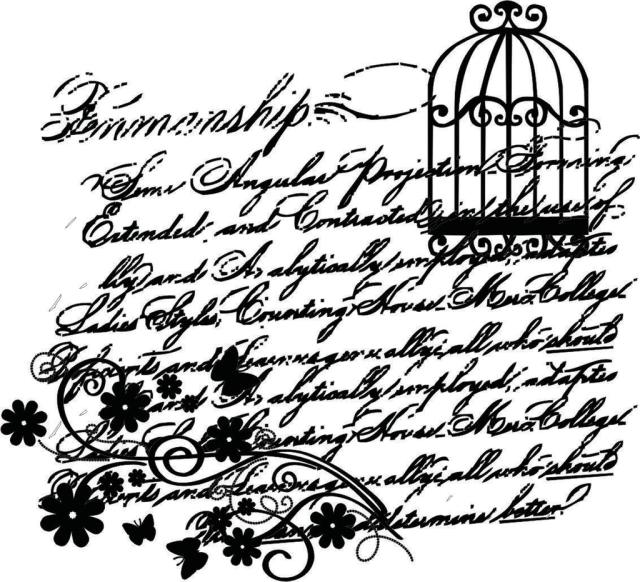 Penmanship.
Semi Angular Projection Forming
Extended and Contracted in the use of
lly and Analytically employed; adaptes
Ladies Styles, Counting House Merc College
and generally; all who should
and Analytically employed; adaptes
Ladies Counting House Merc College
and generally; all who should
determine better?